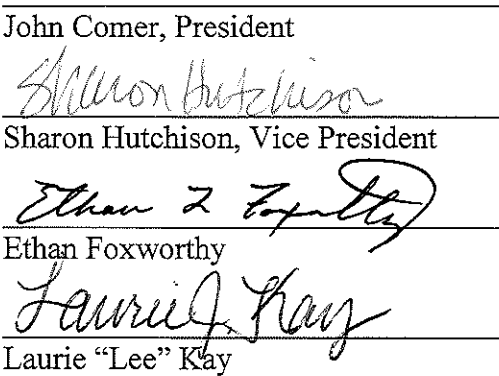 John Comer, President
Sharon Hutchison
Sharon Hutchison, Vice President
Ethan L Foxworthy
Ethan Foxworthy
Laurie J. Kay
Laurie “Lee” Kay